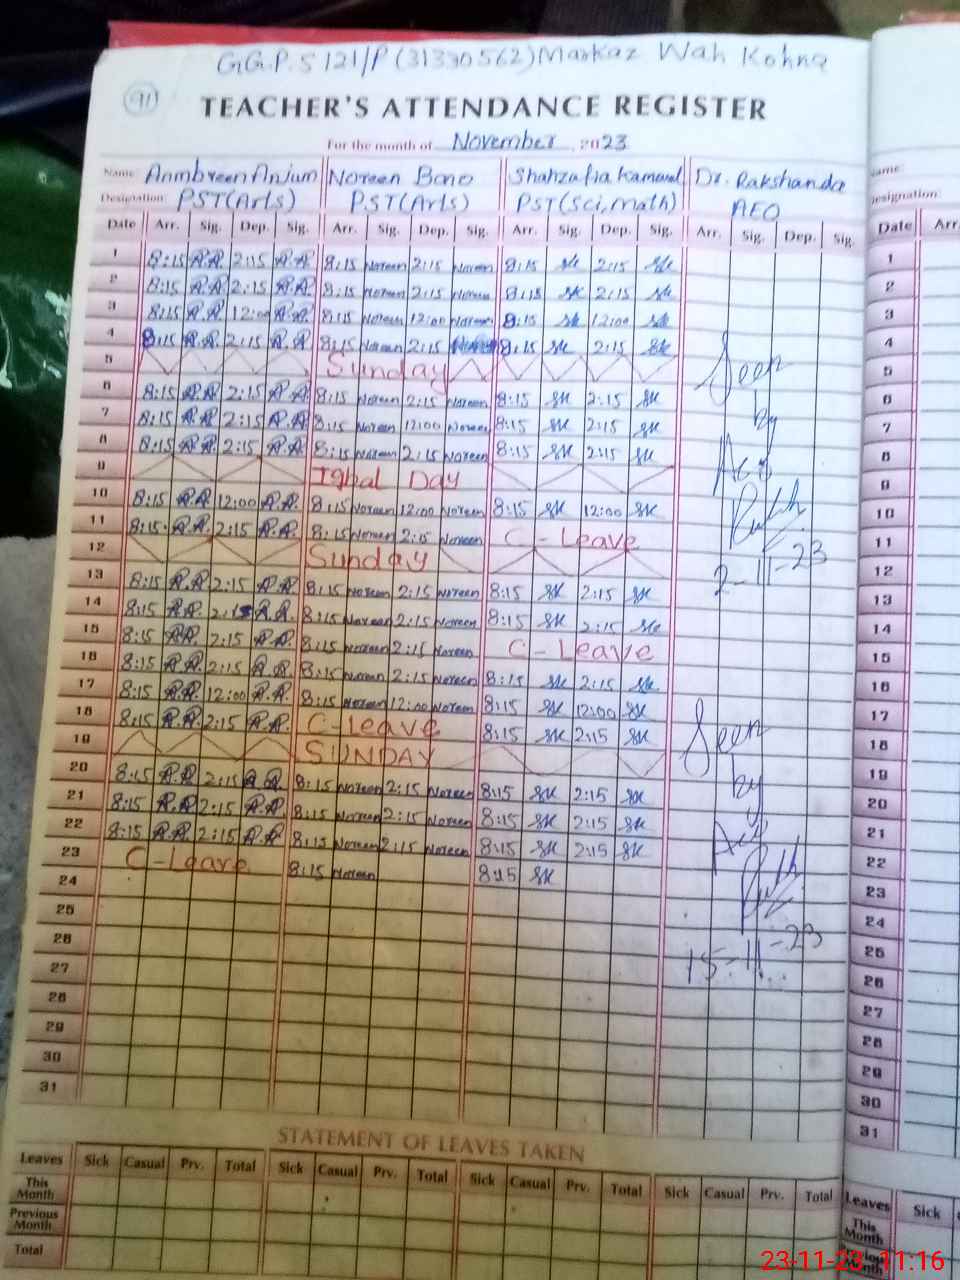 G.G.P.S 121/P (31330562) Markaz Wah Kohna
91
TEACHER'S ATTENDANCE REGISTER
For the month of November 2023
Name: Ambreen Anjum Noreen Bano Shahzafia Kanwal Dr. Rakshanda
Designation: PST(Arts) PST(Arts) PST(Sci, Math) AEO
Date Arr. Sig. Dep. Sig. Arr. Sig. Dep. Sig. Arr. Sig. Dep. Sig. Arr. Sig. Dep. Sig.
1 8:15 A.A 2:15 A.A 8:15 Noreen 2:15 Noreen 8:15 SK 2:15 SK
2 8:15 A.A 2:15 A.A 8:15 Noreen 2:15 Noreen 8:15 SK 2:15 SK
3 8:15 A.A 12:00 A.A 8:15 Noreen 12:00 Noreen 8:15 SK 12:00 SK
4 8:15 A.A 2:15 A.A 8:15 Noreen 2:15 8:15 SK 2:15 SK
5 Sunday
6 8:15 A.A 2:15 A.A 8:15 Noreen 2:15 Noreen 8:15 SK 2:15 SK
7 8:15 A.A 2:15 A.A 8:15 Noreen 12:00 Noreen 8:15 SK 2:15 SK
8 8:15 A.A 2:15 A.A 8:15 Noreen 2:15 Noreen 8:15 SK 2:15 SK
9 Iqbal Day
10 8:15 A.A 12:00 A.A 8:15 Noreen 12:00 Noreen 8:15 SK 12:00 SK
11 8:15 A.A 2:15 A.A 8:15 Noreen 2:15 Noreen C-Leave
12 Sunday
13 8:15 A.A 2:15 A.A 8:15 Noreen 2:15 Noreen 8:15 SK 2:15 SK
14 8:15 A.A 2:15 A.A 8:15 Noreen 2:15 Noreen 8:15 SK 2:15 SK
15 8:15 A.A 2:15 A.A 8:15 Noreen 2:15 Noreen C-Leave
16 8:15 A.A 2:15 A.A 8:15 Noreen 2:15 Noreen 8:15 SK 2:15 SK
17 8:15 A.A 12:00 A.A 8:15 Noreen 12:00 Noreen 8:15 SK 12:00 SK
18 8:15 A.A 2:15 A.A C-Leave 8:15 SK 2:15 SK
19 SUNDAY
20 8:15 A.A 2:15 A.A 8:15 Noreen 2:15 Noreen 8:15 SK 2:15 SK
21 8:15 A.A 2:15 A.A 8:15 Noreen 2:15 Noreen 8:15 SK 2:15 SK
22 8:15 A.A 2:15 A.A 8:15 Noreen 2:15 Noreen 8:15 SK 2:15 SK
23 C-Leave 8:15 Noreen 8:15 SK
24
25
26
27
28
29
30
31
Seen
by
AEO
2-11-23
Seen
by
AEO
15-11-23
STATEMENT OF LEAVES TAKEN
Leaves Sick Casual Prv. Total Sick Casual Prv. Total Sick Casual Prv. Total Sick Casual Prv. Total
This Month
Previous Month
Total
Name:
Designation:
Date Arr.
1
2
3
4
5
6
7
8
9
10
11
12
13
14
15
16
17
18
19
20
21
22
23
24
25
26
27
28
29
30
31
Leaves Sick
This Month
Previous Month
23-11-23 11:16